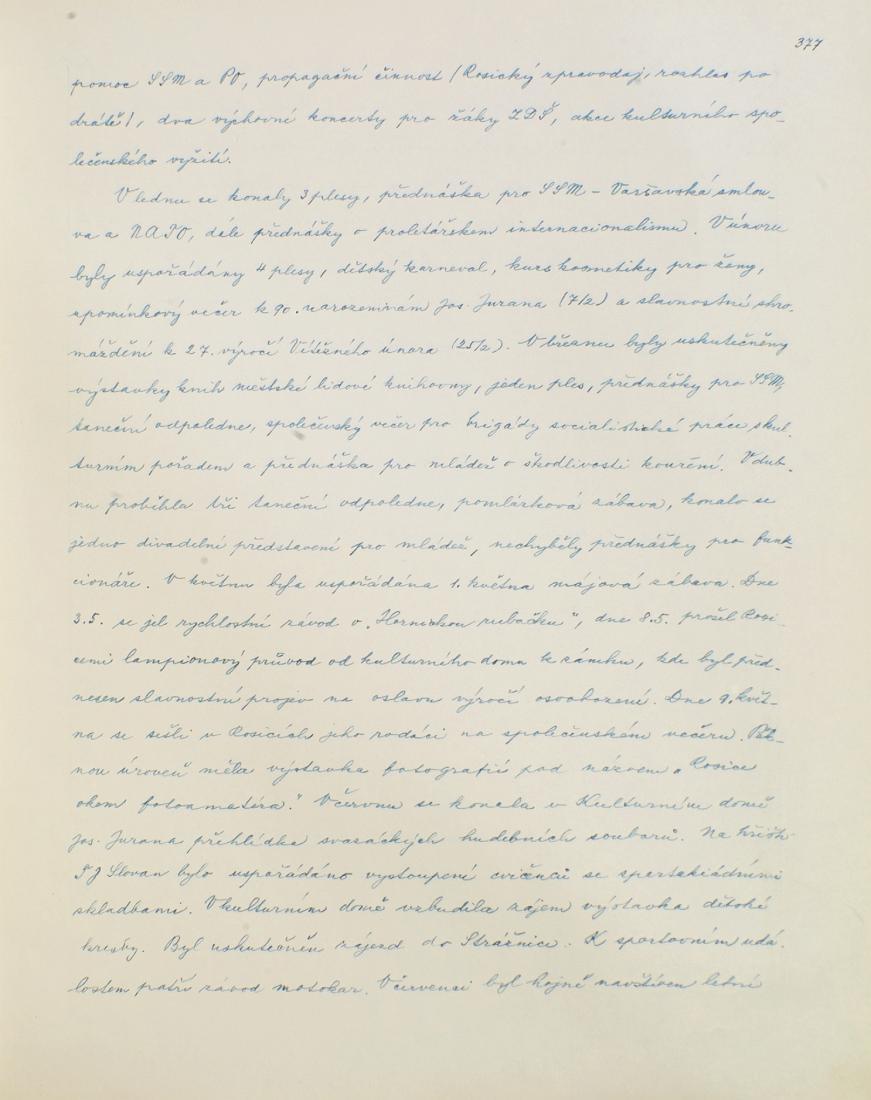 377
pomoc SSM a PO, propagační činnost (Rosický zpravodaj, rozhlas po
drátě), dva výchovní koncerty pro žáky ZDŠ, akce kulturního spo-
lečenského vyžití.
V lednu se konaly 3 plesy, přednáška pro SSM - Varšavská smlou-
va a NATO, dále přednášky o proletářském internacionalismu. V únoru
byly uspořádány 4 plesy, dětský karneval, kurs kosmetiky pro ženy,
vzpomínkový večer k 90. narozeninám Jos. Jurana (7/2) a slavnostní shro-
máždění k 27. výročí Vítězného února (25/2). V březnu byly uskutečněny
výstavky knih městské lidové knihovny, jeden ples, přednášky pro SSM,
taneční odpoledne, společenský večer pro brigády socialistické práce s kul-
turním pořadem a přednáška pro mládež o škodlivosti kouření. V dub-
nu proběhla tři taneční odpoledne, pomlázková zábava, konalo se
jedno divadelní představení pro mládež, nechyběly přednášky pro funk-
cionáře. V květnu byla uspořádána 1. května májová zábava. Dne
3.5. se jel rychlostní závod o „Hornickou rubačku", dne 8.5. prošel Rosi-
cemi lampionový průvod od kulturního domu k zámku, kde byl před-
nesen slavnostní projev na oslavu výročí osvobození. Dne 9. květ-
na se sešli v Rosicích jeho rodáci na společenském večeru. Pěk-
nou úroveň měla výstavka fotografií pod názvem „Rosice
okem fotoamatéra." V červnu se konala v Kulturním domě
Jos. Jurana přehlídka svazáckých hudebních souborů. Na hřišti
TJ Slovan bylo uspořádáno vystoupení cvičenců se spartakiádními
skladbami. V kulturním domě vzbudila zájem výstavka dětské
kresby. Byl uskutečněn zájezd do Strážnice. K sportovním udá-
lostem patřil závod motokar. V červenci byl hojně navštíven letní